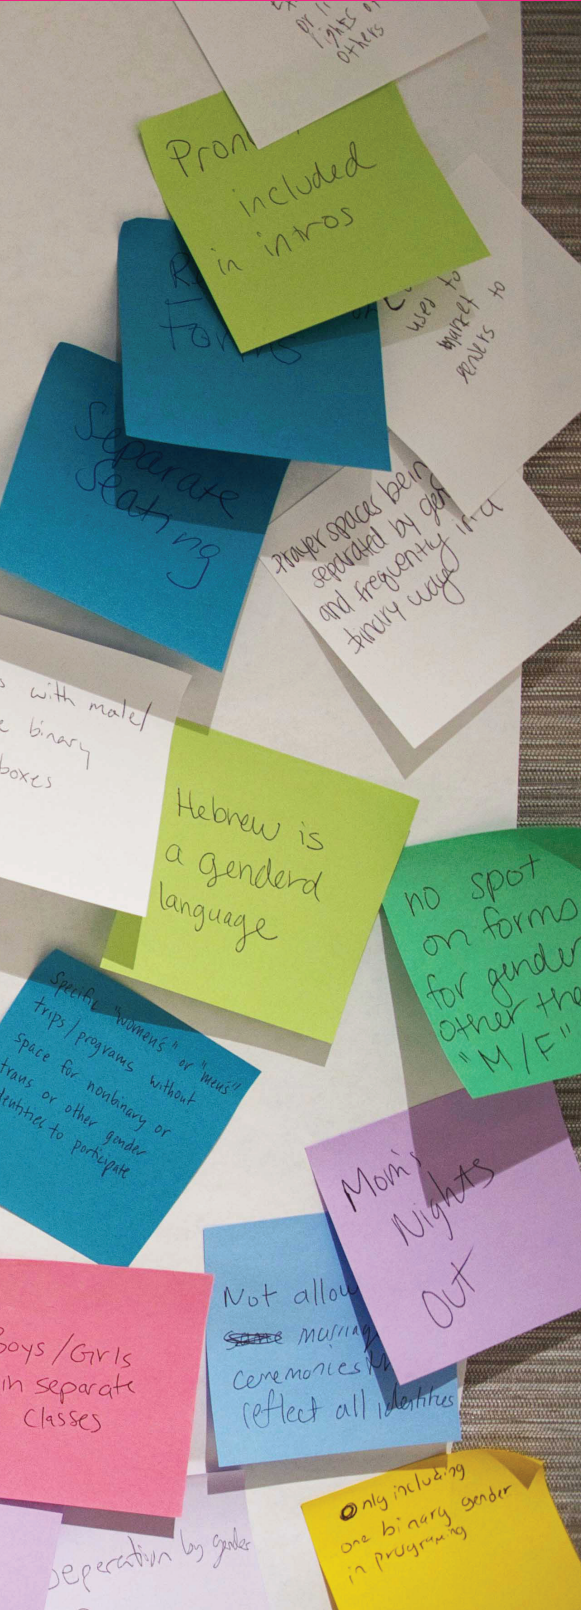 or
rights o
others
Pron
included
in intros
used to
market to
genders to
R
Forms
Separate
Seating
Prayer spaces bein
separated by gen
and frequently in a
binary way
s with male/
e binary
boxes
Hebrew is
a genderd
language
no spot
on forms
for gender
other tha
"M/F"
Specific "women's" or "mens"
trips/programs without
space for nonbinary or
trans or other gender
dentities to participate
Mom's
Nights
Out
Not allow
marriag
ceremonies
reflect all identities
Boys/Girls
in separate
classes
Only including
one binary gender
in programing
Seperation by gender